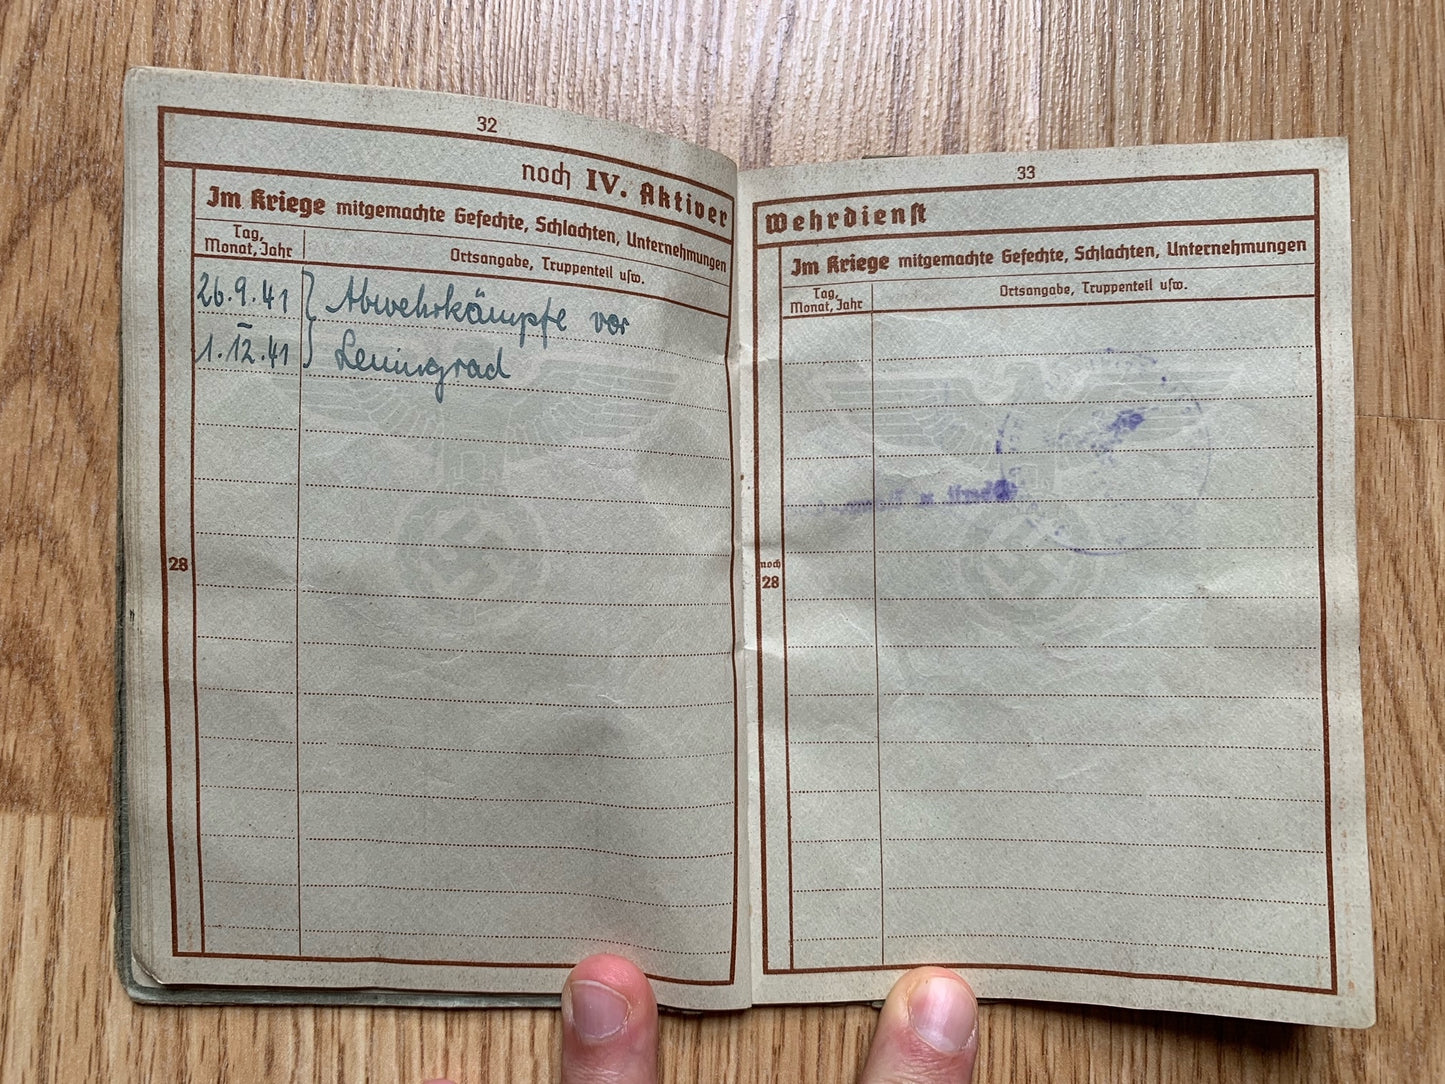 32
noch IV. Aktiver
Im Kriege mitgemachte Gefechte, Schlachten, Unternehmungen
Tag,
Monat, Jahr
Ortsangabe, Truppenteil usw.
26.9.41 Abwehrkämpfe vor
1.12.41 Leningrad
28
33
Wehrdienst
Im Kriege mitgemachte Gefechte, Schlachten, Unternehmungen
Tag,
Monat, Jahr
Ortsangabe, Truppenteil usw.
noch
28